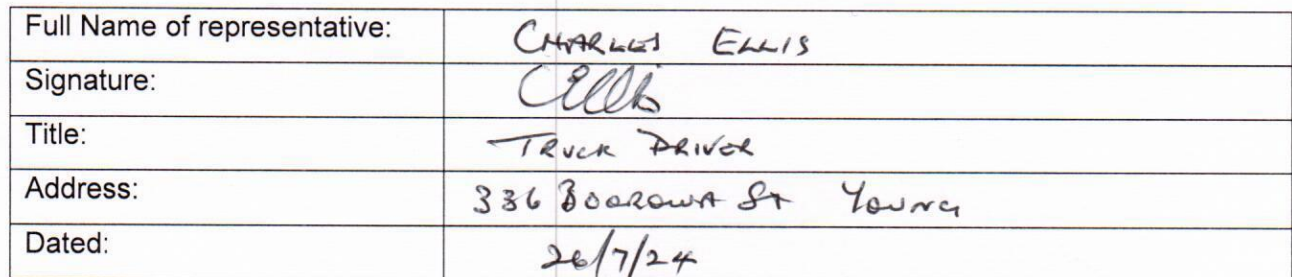 Full Name of representative: CHARLES ELLIS
Signature: CEllis
Title: TRUCK DRIVER
Address: 336 BOOROWA ST YOUNG
Dated: 26/7/24